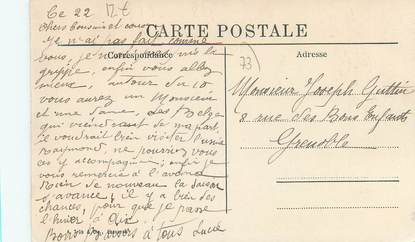 Ce 22
Chers Cousins et cous
CARTE POSTALE
Je n'ai pas fait comme
vous, je n'ai pas la
Correspondance
Adresse
grippe, enfin vous allez
mieux, autour du 10
vous aurez un Monsieur
et une dame, des Belges
qui viendront de ma part,
je voudrait bien visiter l'usine
Raymond, ne pourriez vous
les y accompagner; enfin je
vous remercie à l'avance
Rien de nouveau la saison
s'avance; il y a bien des
chances, pour que je passe
l'hiver à Aix.
Bons baisers à tous Lucie
73
Monsieur Joseph Guttin
8 rue des Bons Enfants
Grenoble